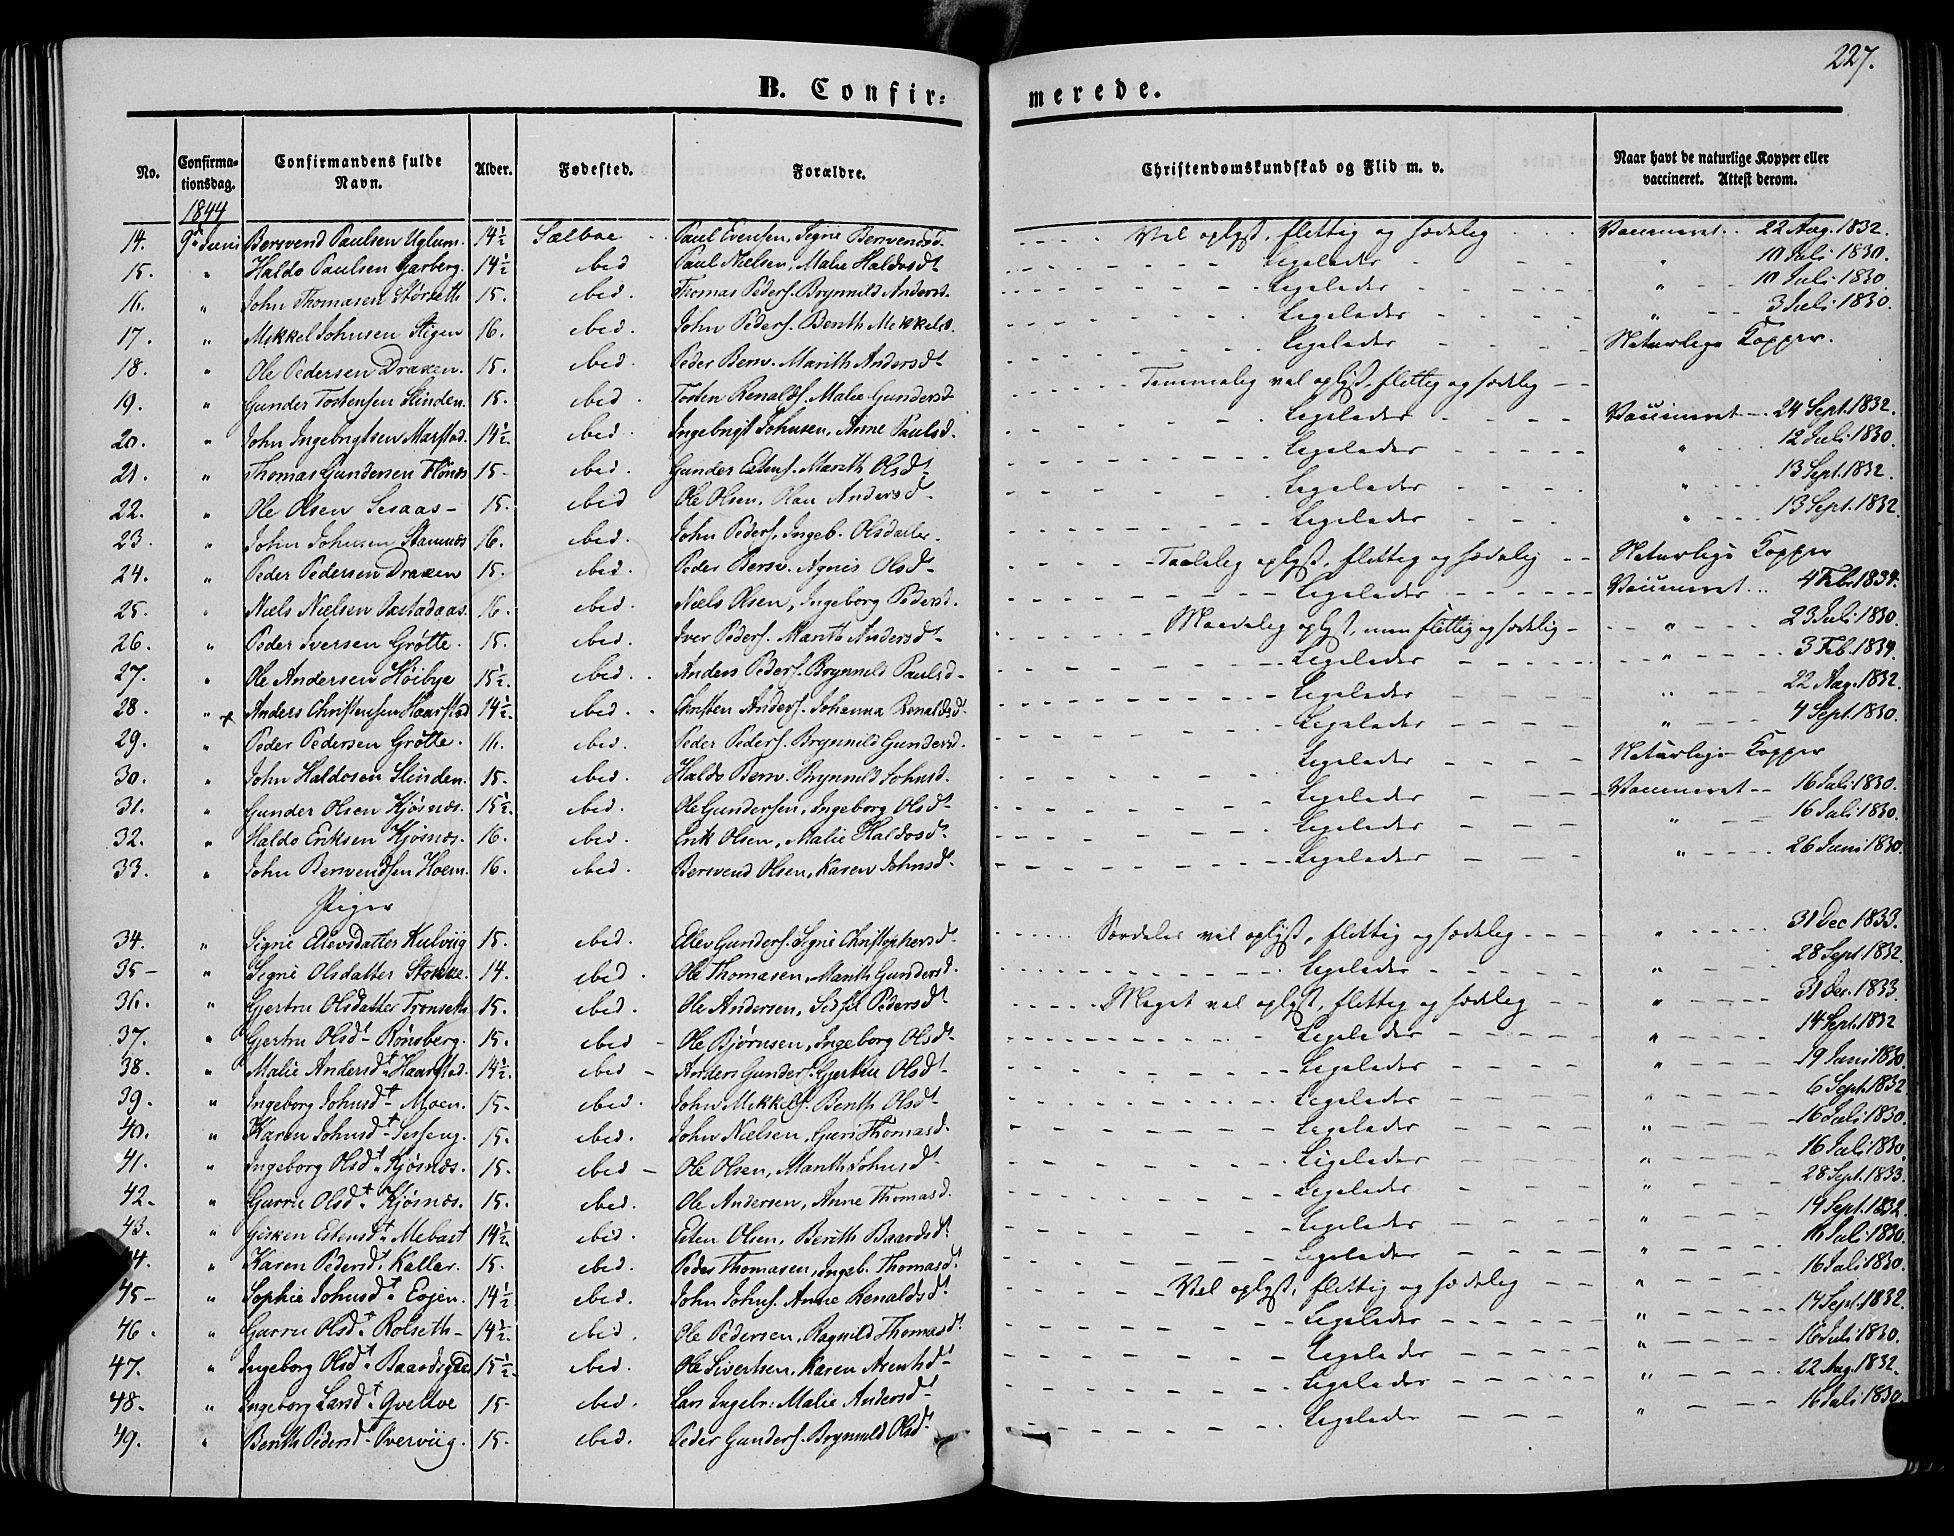 227.
B. Confir=
merede.
No. Confirma-tionsdag. Confirmandens fulde Navn. Alder. Fødested. Forældre. Christendomskundskab og Flid m. v. Naar havt de naturlige Kopper eller vaccineret. Attest derom.
1844
14. 9de Juni Bersvend Paulsen Uglum. 14½ Sælboe Paul Evensen, Signe Bersvendsd. Vel oplyst, flittig og sædelig Vaccineret 22 Aug. 1832.
15. " Haldo Paulsen Garberg. 14½ ibid Paul Nielsen, Malie Haldosdt. Ligeledes " 10 Juli 1830.
16. " John Thomasen Størseth 15. ibid. Thomas Peders. Brynnild Andersd. Ligeledes " 10 Juli 1830
17. " Mikkel Johnsen Stigen 16. ibid. John Peders. Berith Mikkelsd. Ligeledes " 3 Juli 1830.
18. " Ole Pedersen Draxen. 15. ibid. Peder Bersv. Marith Andersdt. Ligeledes Naturlige Kopper.
19. " Gunder Tostensen Slinden. 15. ibid. Tosten Renaldsf. Malie Gundersd. Temmelig vel oplyst, flittig og sædelig
20. " John Ingebrigtsen Marstad. 14½. ibid. Ingebrigt Johnsen, Anne Paulsd. Ligeledes Vaccineret 24 Sept. 1832.
21. " Thomas Gundersen Flønes 15- ibid. Gunder Estens. Marith Olsdt. Ligeledes " 12 Juli 1830.
22. " Ole Olsen Sesaas- 15. ibid Ole Olsen, Olau Andersdt. Ligeledes " 13 Sept. 1832.
23. " John Johnsen Stamnes 16. ibid. John Peders. Ingeb. Olsdatter. Ligeledes " 13 Sept. 1832
24. " Peder Pedersen Draxen 15. ibid. Peder Bersv. Agnis Olsdt. Taalelig oplyst, flittig og sædelig Naturlige Kopper
25. " Niels Nielsen 16. ibid. Niels Olsen, Ingeborg Pedersd. Ligeledes Vaccineret 4 Feb. 1834.
26. " Peder Iversen Grøtte. 15. ibid. Iver Peders. Marith Andersdt. Maadelig oplyst, men flittig og sædelig " 23 Juli 1830.
27. " Ole Andersen Høibye 15½. ibid. Anders Peders. Brynnild Paulsd. Ligeledes " 3 Feb. 1834.
28. " + Anders Christensen Haarstad 14½. ibid. Christen Anders. Johanna Renaldsdt. Ligeledes " 22 Aug. 1832.
29. " Peder Pedersen Grøtte. 16. ibid. Peder Peders. Brynnild Gundersd. Ligeledes " 4 Sept. 1830.
30. " John Haldosen Slinden. 15. ibid. Haldo Bersv. Brynnild Johnsd. Ligeledes Naturlige Kopper
31. " Gunder Olsen Kjøsnæs. 15½. ibid. Ole Gundersen, Ingeborg Olsdt. Ligeledes Vaccineret 16 Juli 1830.
32. " Haldo Eriksen Kjøsnæs. 16. ibid. Erik Olsen, Malie Haldosdt. Ligeledes " 16 Juli 1830.
33. " John Bersvendsen Hoem. 16. ibid. Bersvend Olsen, Karen Johnsdt. Ligeledes " 26 Juni 1830.
Piger
34. " Signe Ellevsdatter Kulviig 15. ibid. Ellev Gunders. Signe Christophersdt. Særdeles vel oplyst, flittig og sædelig " 31 Dec 1833.
35- " Signe Olsdatter Stokke. 14. ibid. Ole Thomasen, Marith Gundersd. Ligeledes " 28 Sept 1832.
36. " Gjertru Olsdatter Tronseth 15. ibid. Ole Andersen, Sidsel Pedersdt. Meget vel oplyst, flittig og sædelig " 31 Dec. 1833.
37. " Gjertru Olsdt. Rønsberg. 15. ibid Ole Bjørnsen, Ingeborg Olsdt. Ligeledes " 14 Sept. 1832
38. " Malie Andersdt. Haarstad. 14½. ibid Anders Gunders. Gjertru Olsdt. Ligeledes " 19 Juni 1830.
39. " Ingeborg Johnsdt. Moen. 15- ibid. John Mikkels. Berith Olsdt. Ligeledes " 6 Sept. 1832
40. " Karen Johnsdt. Sesseng. 15. ibid. John Nielsen, Guri Thomasd. Ligeledes " 16 Juli 1830.
41. " Ingeborg Olsdt. Kjøsnæs. 15. ibid Ole Olsen, Marith Johnsdt. Ligeledes " 16 Juli 1830.
42. " Gurru Olsdt. Kjøsnæs. 15. ibid. Ole Andersen, Anne Thomasd. Ligeledes " 28 Sept. 1833.
43. " Gisken Estensdt. Mebast 14½. ibid. Esten Olsen, Berith Baardsdt. Ligeledes " 14 Sept. 1832.
44. " Karen Pedersdt. Kallar. 15. ibid. Peder Thomasen, Ingeb. Thomasd. Ligeledes " 16 Juli 1830.
45- " Sophie Johnsdt. Evjen. 14½ ibid. John Johns. Anne Renaldsdt. Vel oplyst, flittig og sædelig " 16 Juli 1830.
46. " Gurru Olsdt. Rolseth- 14½. ibid. Ole Pedersen, Ragnild Thomasdt. Ligeledes " 14 Sept. 1832.
47. " Ingeborg Olsdt. 15½ ibid. Ole Sivertsen, Karen Arentsdt. Ligeledes " 16 Juli 1830.
48. " Ingeborg Larsdt. Qvelloe 15- ibid. Lars Ingebr. Malie Andersdt. Ligeledes " 22 Aug. 1832.
49. " Berith Pedersdt. Overviig. 15. ibid. Peder Gunders. Brynnild Olsdt. Ligeledes " 16 Juli 1830